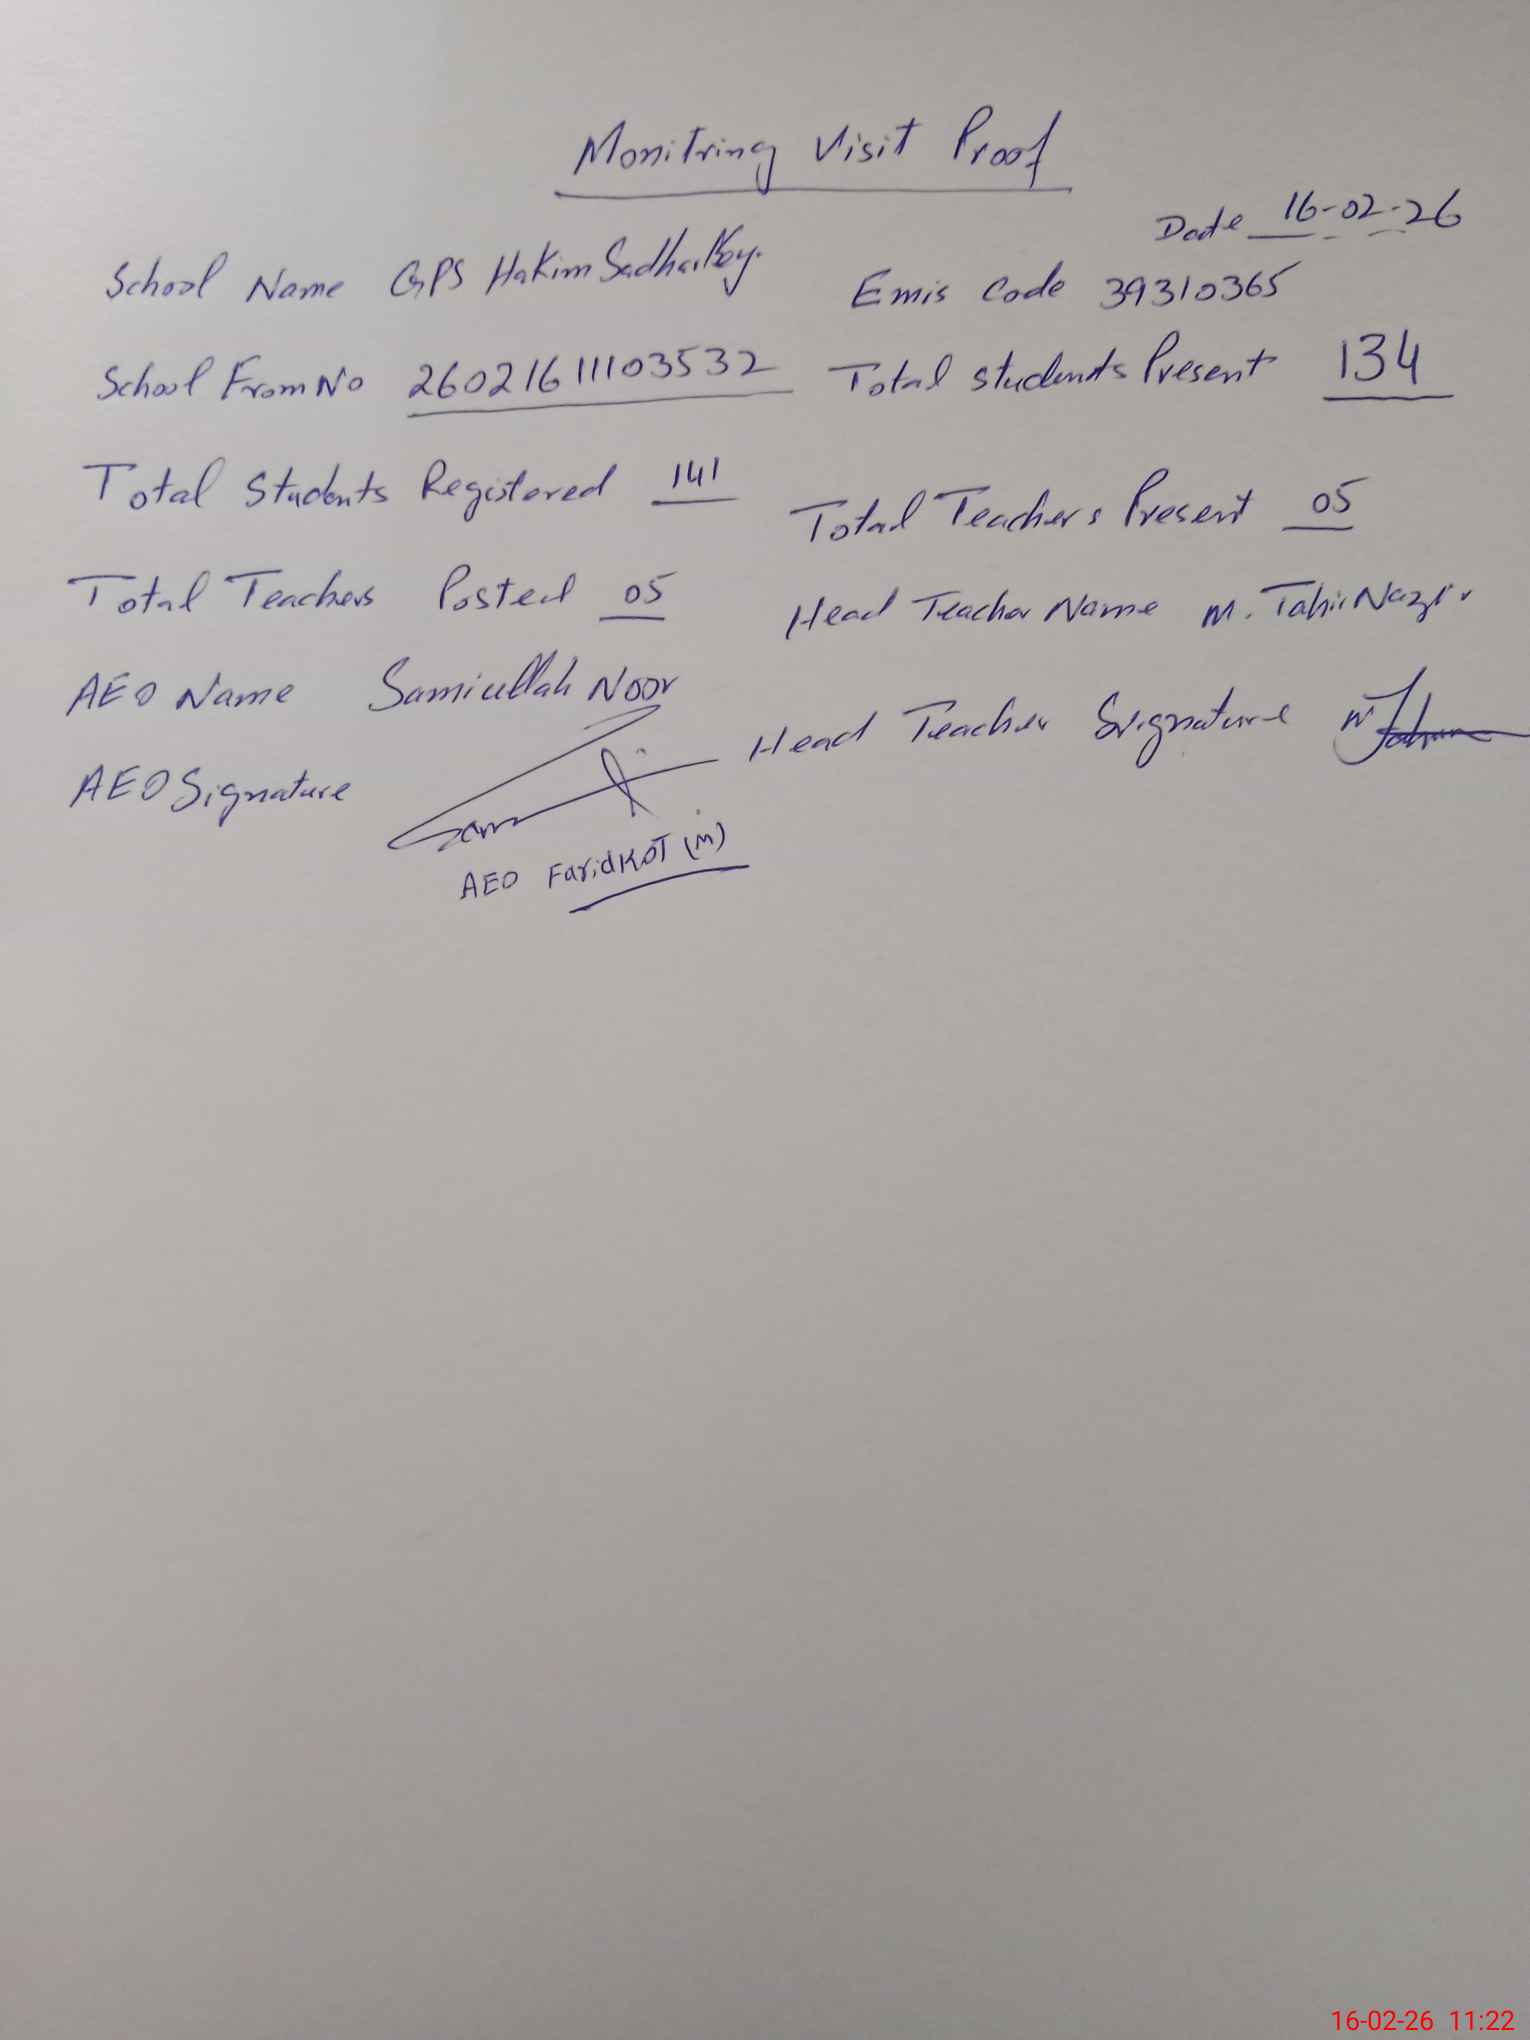 Monitring Visit Proof
Date 16-02-26
School Name GPS Hakim Sadharkey. Emis Code 39310365
School From No 26021611103532 Total students Present 134
Total Students Registered 141 Total Teachers Present 05
Total Teachers Posted 05 Head Teacher Name M. Tahir Nazir
AEO Name Samiullah Noor Head Teacher Signature
AEO Signature
AEO FaridKOT (M)
16-02-26 11:22